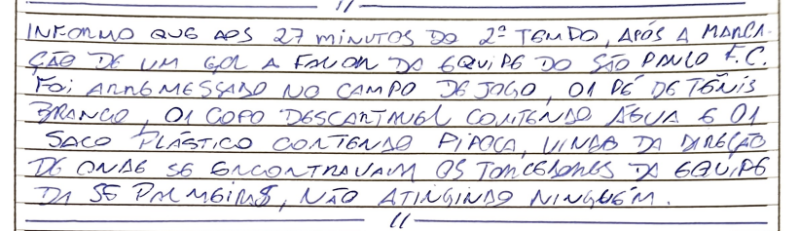 INFORMO QUE AOS 27 MINUTOS DO 2º TEMPO, APÓS A MARCA-
ÇÃO DE UM GOL A FAVOR DA EQUIPE DO SÃO PAULO F.C.
FOI ARREMESSADO NO CAMPO DE JOGO, 01 PÉ DE TÊNIS
BRANCO, 01 COPO DESCARTÁVEL CONTENDO ÁGUA E 01
SACO PLÁSTICO CONTENDO PIPOCA, VINDO DA DIREÇÃO
DE ONDE SE ENCONTRAVAM OS TORCEDORES DA EQUIPE
DA SE PALMEIRAS, NÃO ATINGINDO NINGUÉM.